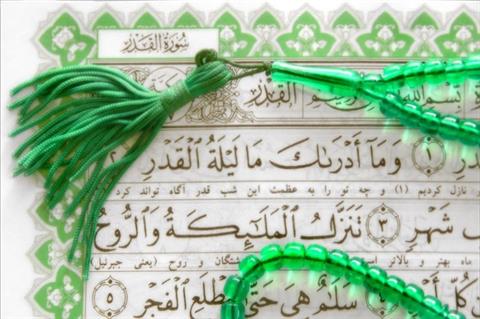 سُورَةُ الْقَدْرِ
بِسْمِ اللهِ
الْقَدْرِ ١ وَمَآ أَدْرَىٰكَ مَا لَيْلَةُ الْقَدْرِ ٢
نازل کردیم (۱) و چه تو را به عظمت این شب قدر آگاه تواند کرد
شَهْرٍ ٣ تَنَزَّلُ الْمَلَٰٓئِكَةُ وَالرُّوحُ
ماه بهتر و بالاتر و روح (یعنی جبرئیل)
كُلِّ سَلَٰمٌ هِيَ حَتَّىٰ مَطْلَعِ الْفَجْرِ ٥